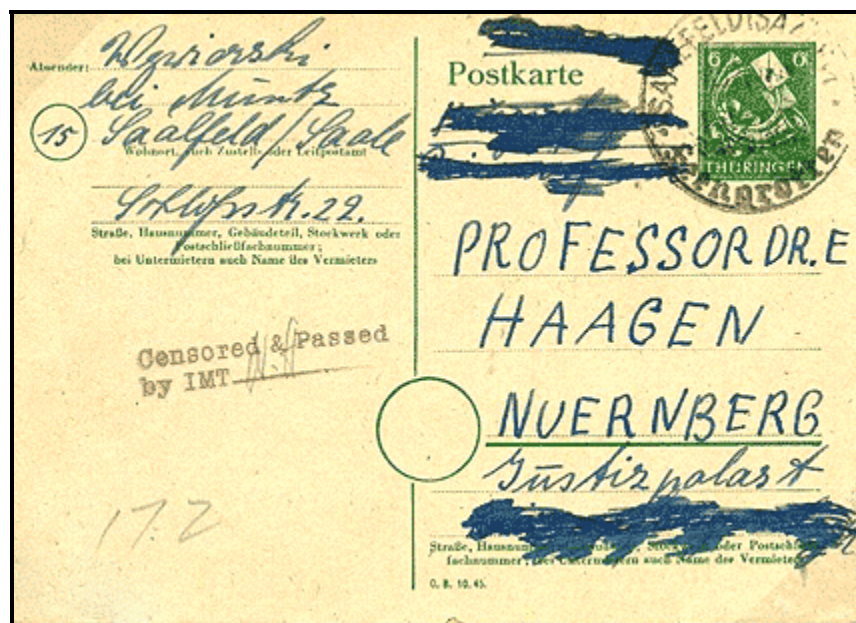 Absender: Wywiorski
bei Muntz
15
Saalfeld/Saale
Wohnort, auch Zustell- oder Leitpostamt
Schloßstr. 22.
Straße, Hausnummer, Gebäudeteil, Stockwerk oder
Postschließfachnummer;
bei Untermietern auch Name des Vermieters
Censored & Passed
by IMT
17.2
Postkarte
6 6
THÜRINGEN
PROFESSOR DR. E
HAAGEN
NUERNBERG
Justizpalast
Straße, Hausnummer, oder Postschließ-
fachnummer; bei Untermietern auch Name des Vermieters
O. B. 10. 45.